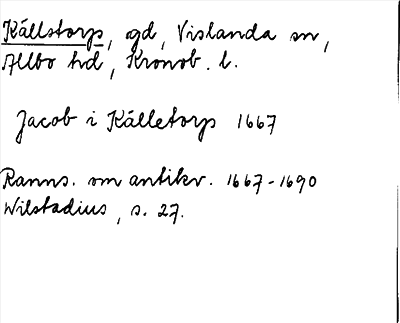 Källstorp, gd, Vislanda sn,
Allbo hd, Kronob. l.
Jacob i Källetorp 1667
Ranns. om antikv. 1667-1690
Wilstadius, s. 27.